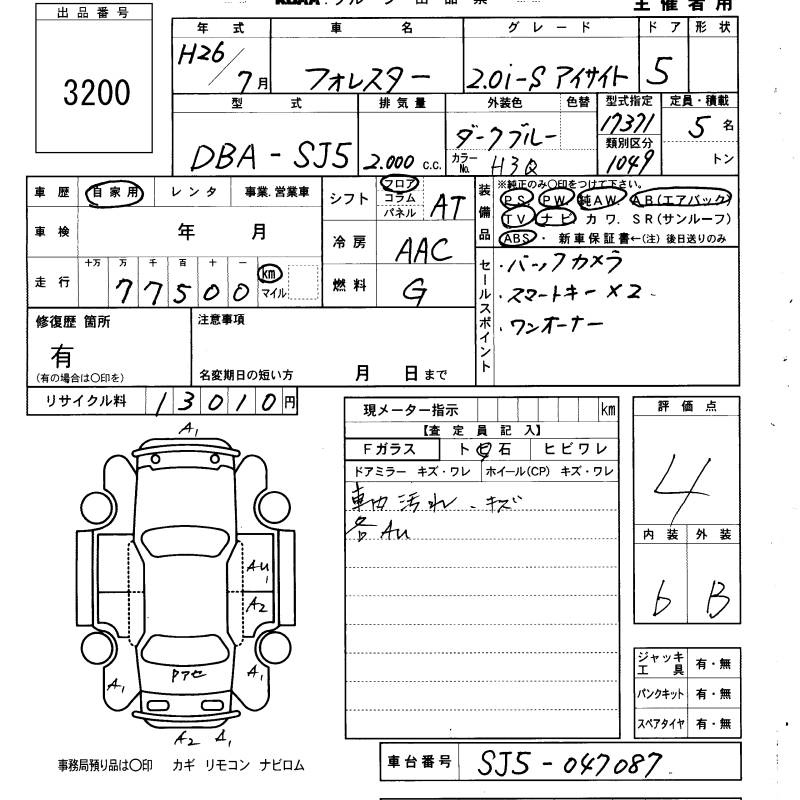 主催者用
出品番号
3200
年式 車名 グレード ドア 形状
H26/7月 フォレスター 2.0i-S アイサイト 5
型式 排気量 外装色 色替 型式指定 定員・積載
DBA-SJ5 2.000 c.c. ダークブルー 17371 5名
カラーNo. H3Q 類別区分 1049 トン
車歴 自家用 レンタ 事業.営業車
車検 年 月
走行 十万 万 千 百 十 一
77500 km マイル
シフト フロア コラム パネル AT
冷房 AAC
燃料 G
装備品 ※純正のみ〇印をつけて下さい。
PS. PW. 純AW. AB(エアバック)
TV ナビ カワ. SR(サンルーフ)
ABS・ 新車保証書←(注) 後日送りのみ
セールスポイント
・バックカメラ
・スマートキー×2
・ワンオーナー
修復歴 箇所
有
(有の場合は〇印を)
注意事項
名変期日の短い方 月 日まで
リサイクル料 13010円
現メーター指示 km
【査定員記入】
Fガラス ト石 ヒビワレ
ドアミラー キズ・ワレ ホイール(CP) キズ・ワレ
車内汚れ、キズ
各AU
評価点
4
内装 外装
6 B
A1
AU1
A2
ドアセ
A1 A1
A2 A1
ジャッキ工具 有・無
パンクキット 有・無
スペアタイヤ 有・無
事務局預り品は〇印 カギ リモコン ナビロム
車台番号 SJ5-047087